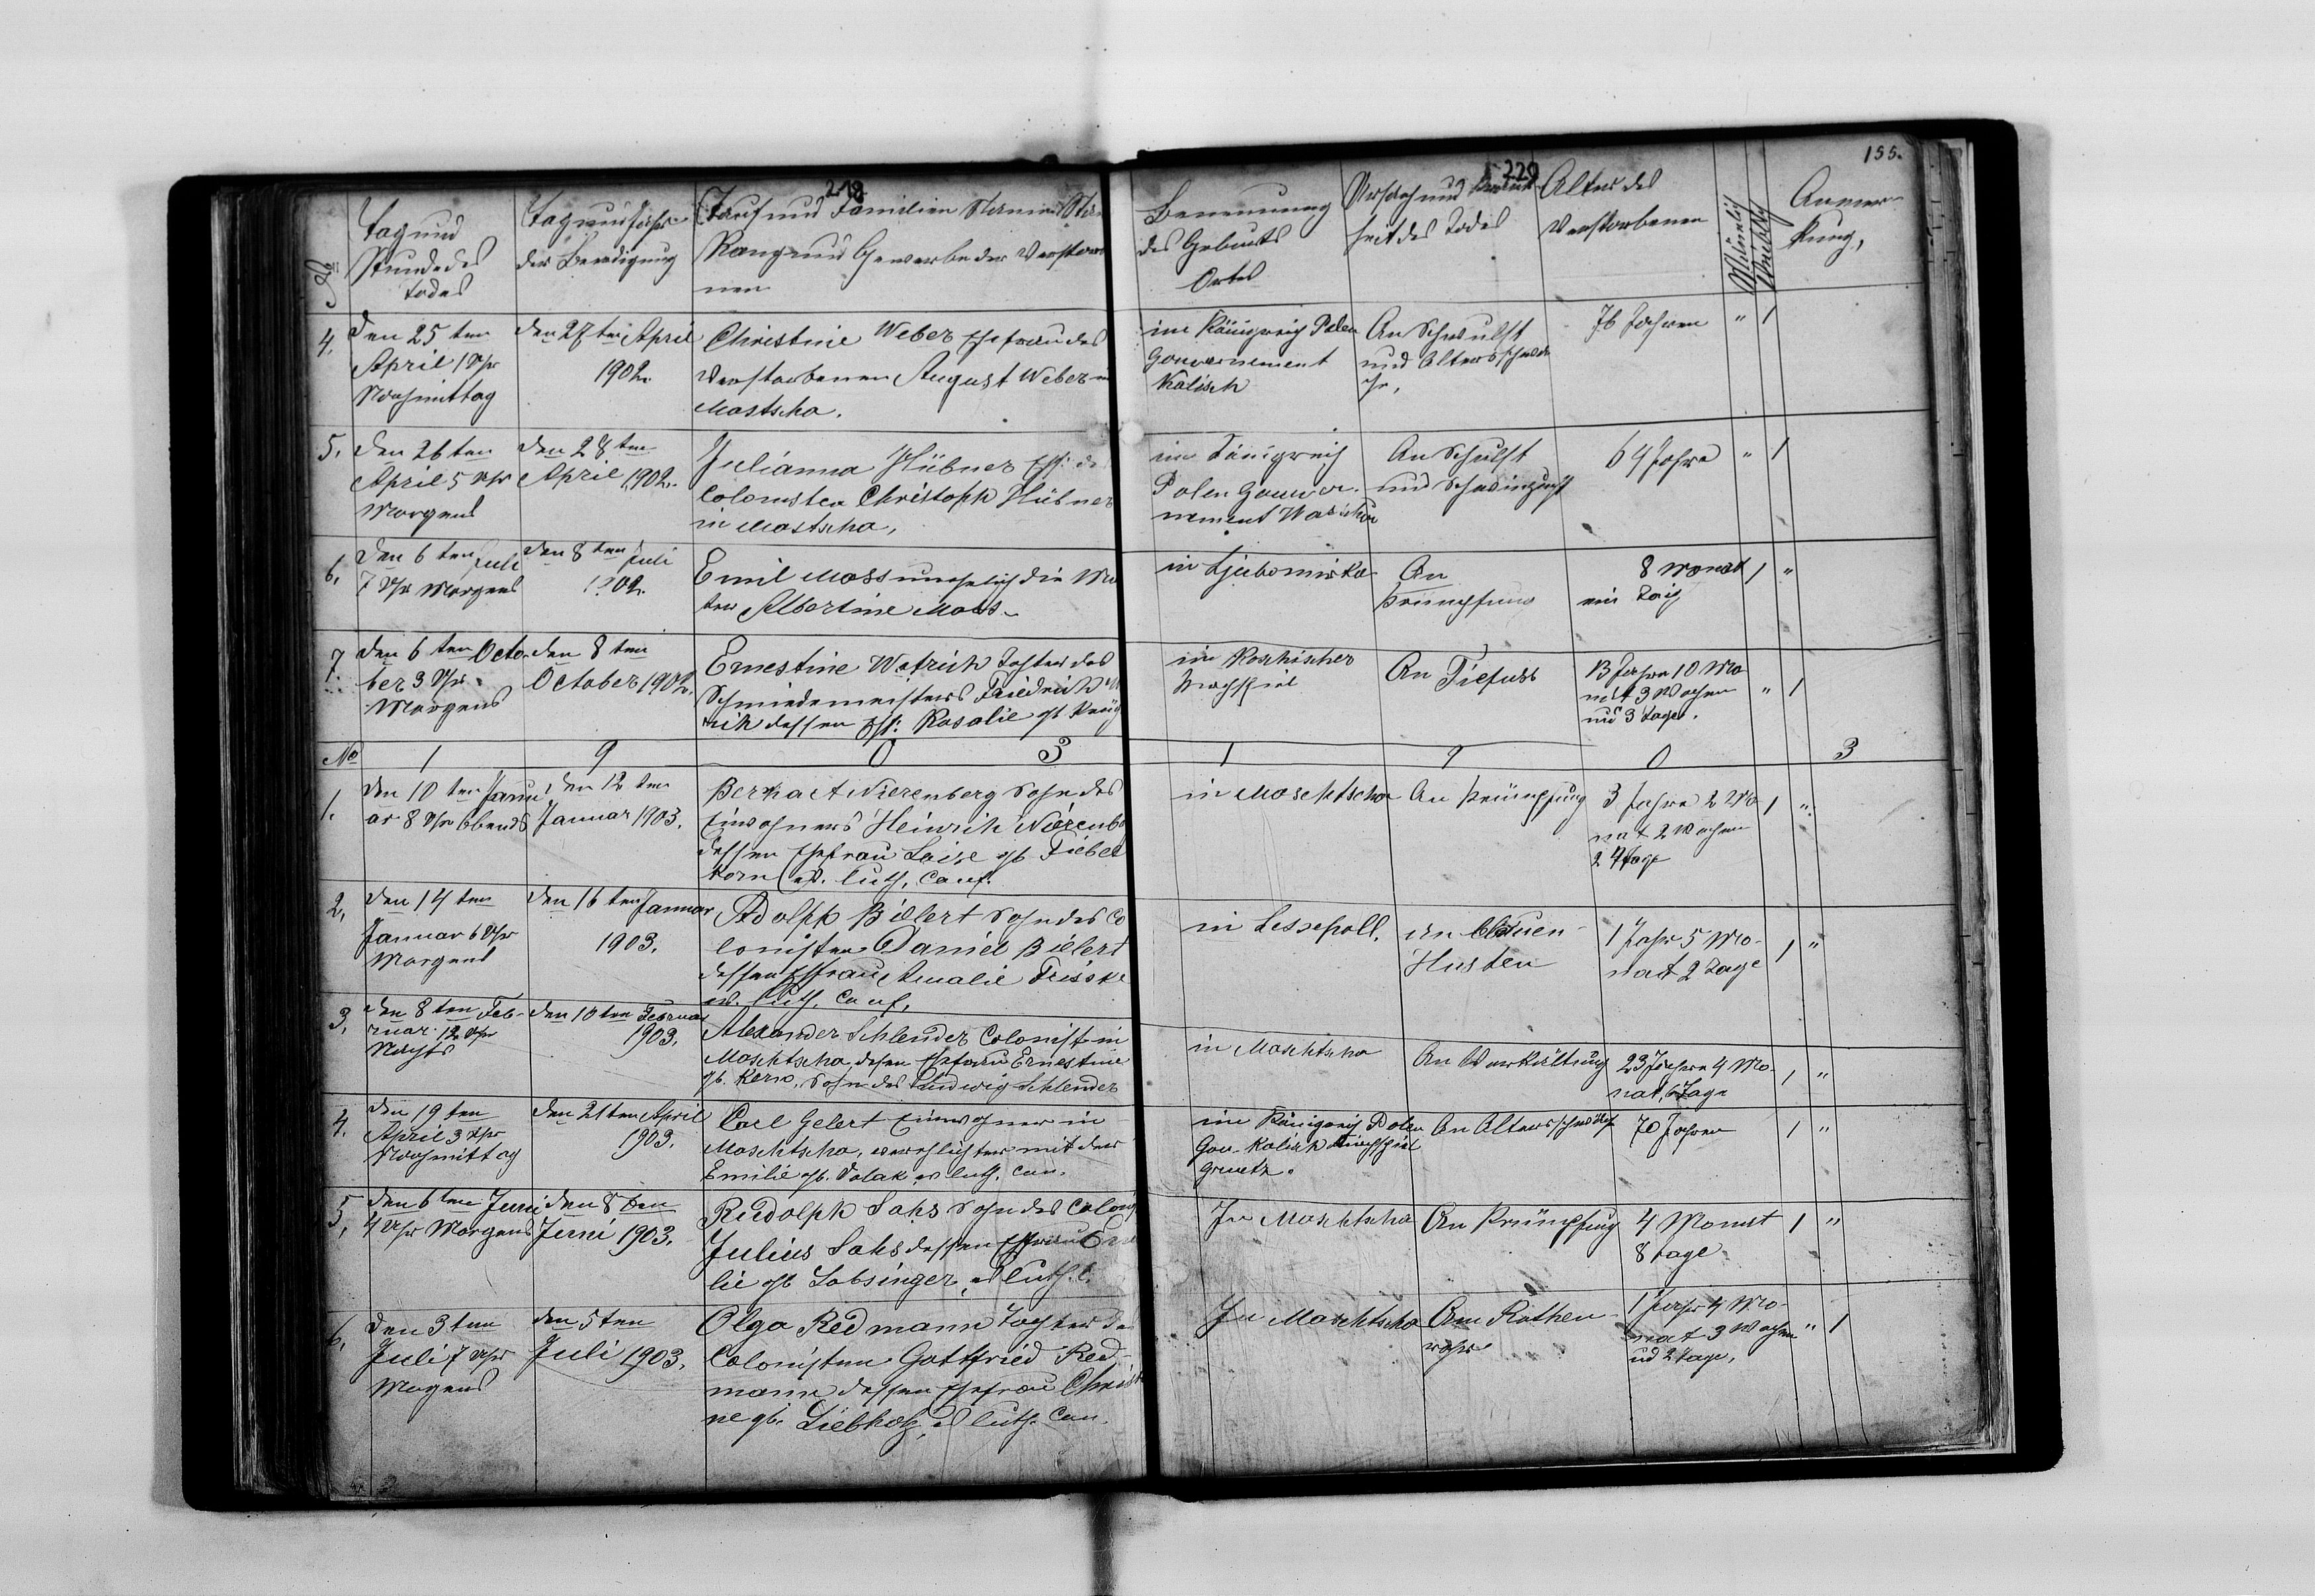 218
229
155.
№
Tag und
Stunde des
Todes
Tag und Jahr
der Beerdigung
Tauf und Familien Namen
Rang und Gewerbe der Verstorbe
nen
Benennung
des Geburts
Ortes
Ursach und
heit des Todes
Alter des
Verstorbenen
Männlich
Weiblich
Anmer-
kung,
4.
den 25 ten
April 1 Uhr
Nachmittag
den 27 ten April
1902.
Christine Weber Ehefrau des
Verstorbenen August Weber in
Mastscha.
im Königreich Polen
Gouvernement
Kalisch
An Schwulst
und Altersschwä
che,
76 Jahren
" 1
5.
den 26 ten
April 5 Uhr
Morgens
den 28 ten
April 1902.
Julianna Hübner Ehf. des
Colonisten Christoph Hübner
in Mastscha,
im Königreich
Polen Gouver-
nement Warschau
An Schulst
und Schwinzucht
64 Jahre
" 1
6.
den 6 ten Juli
7 Uhr Morgens
den 8 ten Juli
1902.
Emil Mass unehelich die Mu
ter Albertine Maas.
in Ljubomirka
An
Krümpfung
8 Monat
ein Tag
1 "
7.
den 6 ten Octo-
ber 3 Uhr
Morgens
den 8 ten
October 1902.
Ernestine Watrich Tochter des
Schmiedemeisters Friedrich
rich dessen Ehf: Rosalie gb
im Roschischer
Kirchspiel
An Tiefuss
13 Jahre 10 Mo
nat 3 Wochen
und 3 Tage.
" 1
№ 1 9 0 3 1 9 0 3
1.
den 10 ten Janu
ar 8 Uhr Abends
den 12 ten
Januar 1903.
Berhart Nierenberg Sohn des
Einwohners Heinrich Nierenbe
dessen Ehefrau Loise gb Fieber
korn ev. luth. Conf.
in Maschtscha
An Krümpfung
3 Jahre 2 Mo
nat 2 Wochen
2 4 Tage
1 "
2.
den 14 ten
Januar 6 Uhr
Morgens
den 16 ten Januar
1903.
Adolph Bielert Sohn des Co
lonisten Daniel Bielert
dessen Ehfrau Amalie Frisske
ev. luth. Conf.
in Lessepoll.
An blauen-
Husten
1 Jahr 5 Mo-
nat 2 Tage
1 "
3.
den 8 ten Feb-
ruar 12 Uhr
Nachts
den 10 ten Februar
1903.
Alexander Schlender Colonist in
Maschtscha, desen Ehefrau Ernestine
gb. Kern, Sohn des Ludwig Schlender
in Maschtscha
An Verkältung
23 Jahre 4 Mo-
nat, 6 Tage
1 "
4.
den 19 ten
April 3 Uhr
Nachmittag
den 21 ten April
1903.
Carl Gelert Einwohner in
Maschtscha, verehlichter mit der
Emilie gb. Polak ev luth. Con.
im Königreich Polen
Gou. Kalisch Kirchspiel
An Altersschwäche
70 Jahren
1 "
5.
den 6 ten Juni
4 Uhr Morgens
den 8 ten
Juni 1903.
Rudolph Sahs Sohn des Colonis
Julius Sahs dessen Ehfrau Emi
lie gb Labsinger, ev luth. C.
In Maschtscha
An Krümpfung
4 Monat
8 Tage
1 "
6.
den 3 ten
Juli 7 Uhr
Morgens
den 5 ten
Juli 1903.
Olga Redmann Tochter des
Colonisten Gottfried Red-
mann dessen Ehefrau Christi
ne gb. Liebholz, ev luth. Con.
In Maschtscha
Am Rothen-
ruhr
1 Jahr 4 Mo-
nat 3 Wochen
ud 2 Tage,
" 1